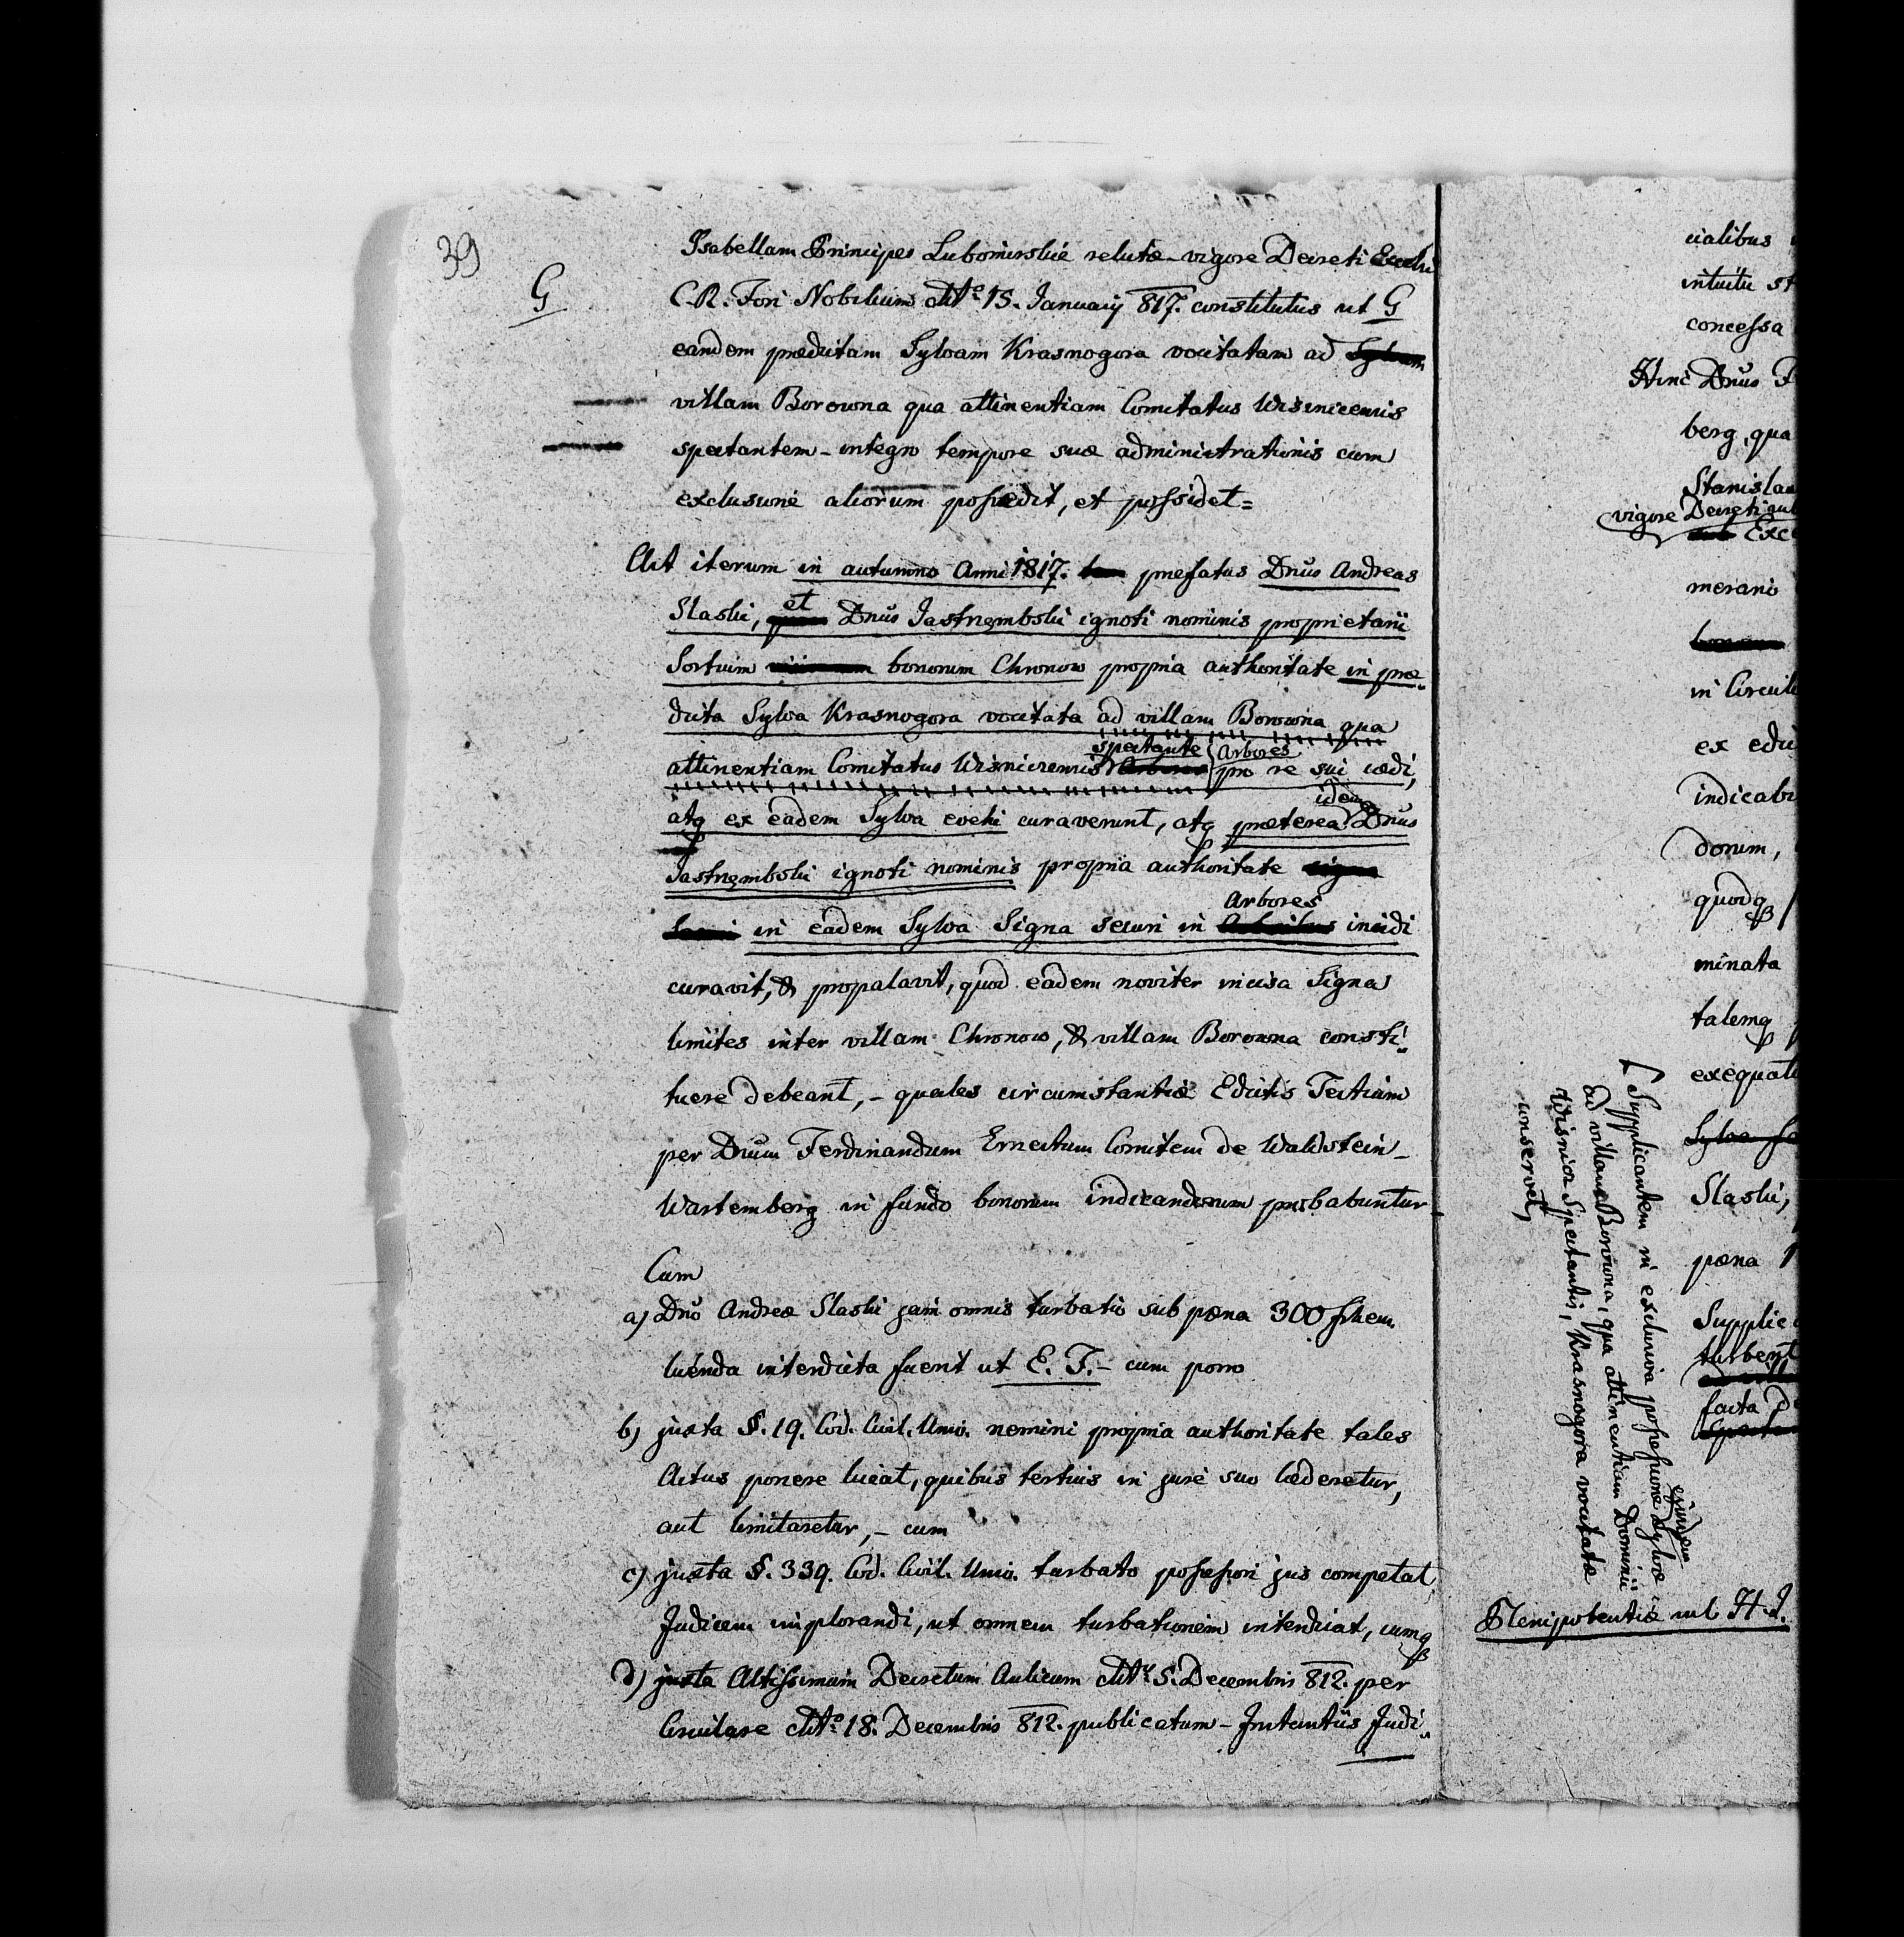 39
G
Isabellam Principes Lubomirskie relictæ vigore Decreti Excelsi
C. R. Fori Nobilium ddto 15. January 817. constitutus ut G
eandem prædictam Sylvam Krasnogora vocitatam ad Sylvam
villam Borowna qua attinentiam Comitatus Wisnicensis
spectantem - integro tempore suæ administrationis cum
exclusione aliorum possedit, et possidet =
Ast iterum in autumno Anni 1817. præfatus Dnus Andreas
Slaski, et Dnus Jastrzembski ignoti nominis proprietarii
Sortium bonorum Chronow propria authoritate in præ-
dicta Sylva Krasnogora vocitata ad villam Borowna qua
attinentiam Comitatus Wisnicensis spectante Arbores pro re sui cædi,
atq ex eadem Sylva evehi curaverunt, atq præterea idem Dnus
Jastrzembski ignoti nominis propria authoritate signa
in eadem Sylva Signa securi in Arbores incidi
curavit, & propalavit, quod eadem noviter incisa Signa
limites inter villam Chronow, & villam Borowna consti-
tuere debeant, - quales circumstantiæ Edictis Testium
per Dnum Ferdinandum Ernestum Comitem de Waldstein-
Wartemberg in fundo bonorum indicandorum probabuntur
Cum
a) Dno Andreæ Slaski jam omnis turbatio sub pæna 300 fRhen.
luenda interdicta fuerit ut E. F. - cum porro
b) juxta §. 19. Cod. Civil. Univ. nemini propria authoritate tales
Actus ponere liceat, quibus tertius in jure suo læderetur,
aut limitaretur, - cum
c) juxta §. 339. Cod. Civil. Univ. turbato possessori jus competat
Judicem implorandi, ut omnem turbationem interdicat, cumq
d) juxta Altissimum Decretum Aulicum ddto 5. Decembris 812. per
Circulare ddto 18. Decembris 812. publicatum - Instantiis Judi-
cialibus
intuitu
concessa
Hinc Dnus
berg, qua
Stanislau
vigore Decreti
Exc
merario
bonorum
in Circul
ex edi
indicab
dorum,
quodq
minata
talemq
exequat
Sylva
Slaski,
pæna
Supplic
turbent
facta
Spectan
Supplicantem in exclusiva possessione Sylvæ ejusdem
ad villam Borowna, qua attinentiam Dominii
Wisnicz Spectantis, Krasnogora vocitatæ
conservet,
Plenipotentiæ sub H. I.